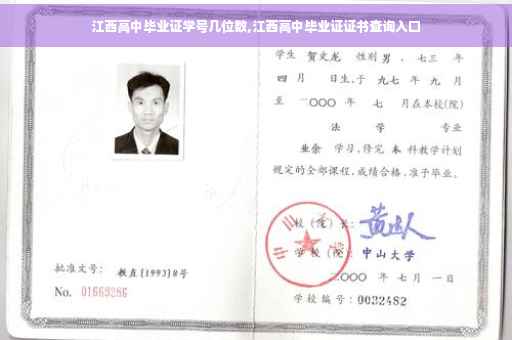 江西高中毕业证学号几位数,江西高中毕业证证书查询入口
学生 贺文龙 性别 男 、七三 年
四 月 日生,于 九七 年 九 月
至 二〇〇〇 年 七 月在本校(院)
法 学 专业
业余 学习,修完 本 科教学计划
规定的全部课程,成绩合格,准予毕业。
校(院)长:
学校(院): 中山大学
二〇〇〇 年 七 月 一 日
学校编号: 0032482
批准文号: 教直[1993]8号
No. 01669286